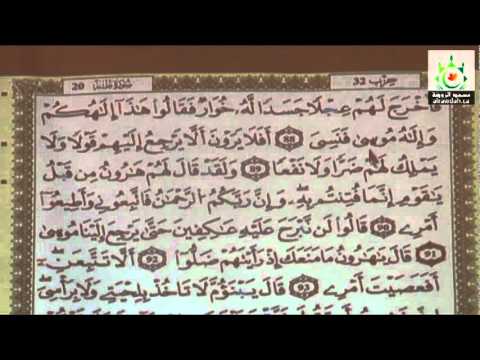 مسجد الروضة
alrawdah.ca
حزب 32
سورة طه 20
فَأَخْرَجَ لَهُمْ عِجْلًا جَسَدًا لَّهُ خُوَارٌ فَقَالُوا هَٰذَا إِلَٰهُكُمْ
وَإِلَٰهُ مُوسَىٰ فَنَسِيَ 88 أَفَلَا يَرَوْنَ أَلَّا يَرْجِعُ إِلَيْهِمْ قَوْلًا وَلَا
يَمْلِكُ لَهُمْ ضَرًّا وَلَا نَفْعًا 89 وَلَقَدْ قَالَ لَهُمْ هَٰرُونُ مِن قَبْلُ
يَٰقَوْمِ إِنَّمَا فُتِنتُم بِهِ وَإِنَّ رَبَّكُمُ الرَّحْمَٰنُ فَاتَّبِعُونِي وَأَطِيعُوا
أَمْرِي 90 قَالُوا لَن نَّبْرَحَ عَلَيْهِ عَٰكِفِينَ حَتَّىٰ يَرْجِعَ إِلَيْنَا مُوسَىٰ
91 قَالَ يَٰهَٰرُونُ مَا مَنَعَكَ إِذْ رَأَيْتَهُمْ ضَلُّوا 92 أَلَّا تَتَّبِعَنِ
أَفَعَصَيْتَ أَمْرِي 93 قَالَ يَبْنَؤُمَّ لَا تَأْخُذْ بِلِحْيَتِي وَلَا بِرَأْسِي